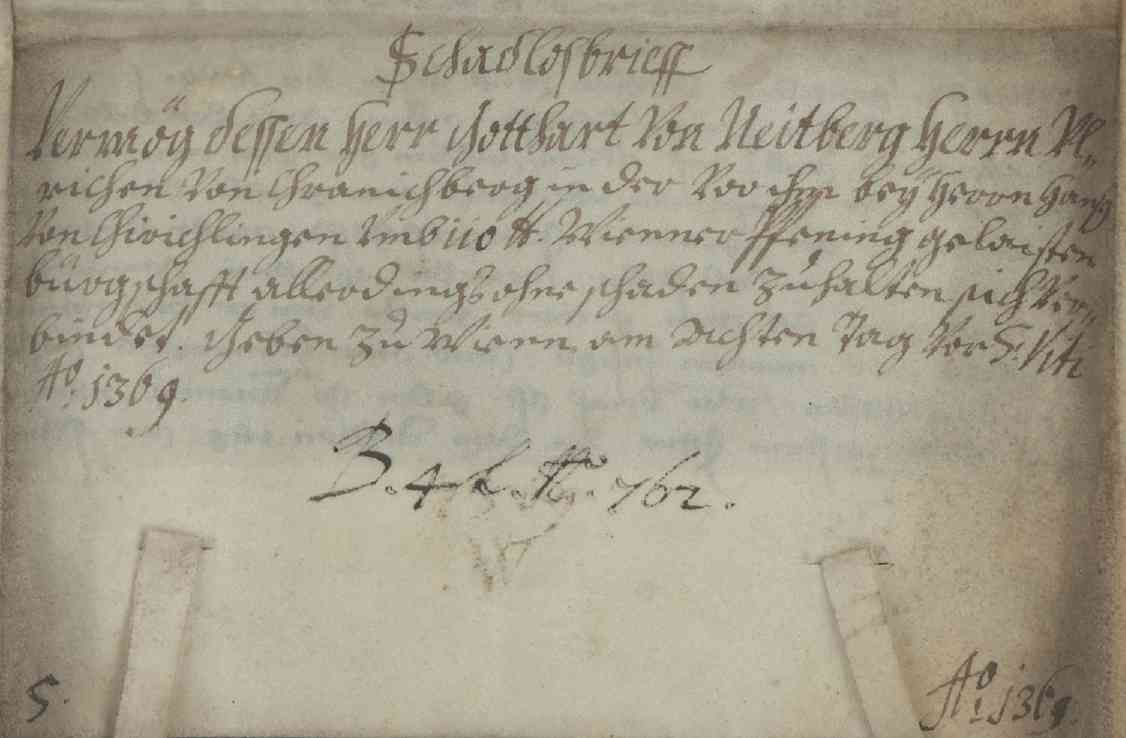 Schadlosbrieff
Vermög dessen Herr Gotthart Von Neitberg Herrn Ul-
richen Von Chranichberg in der Vor ihm beÿ Herrn Hanß
Von Chirichlingen Umb 110 ℔. Wienner Pfening gelaisten
bürgschafft allerdings ohne schaden zuhalten sich Ver-
bindet. Geben zu Wienn am Achten Tag Vor S: Viti
Aō. 1369.
B. 4 No. 762.
5.
Aō. 1369.